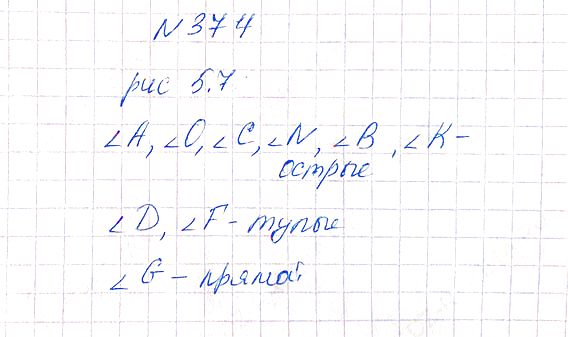 N 374
рис 5.7
∠A, ∠O, ∠C, ∠N, ∠B, ∠K -
острые
∠D, ∠F - тупые
∠G - прямой